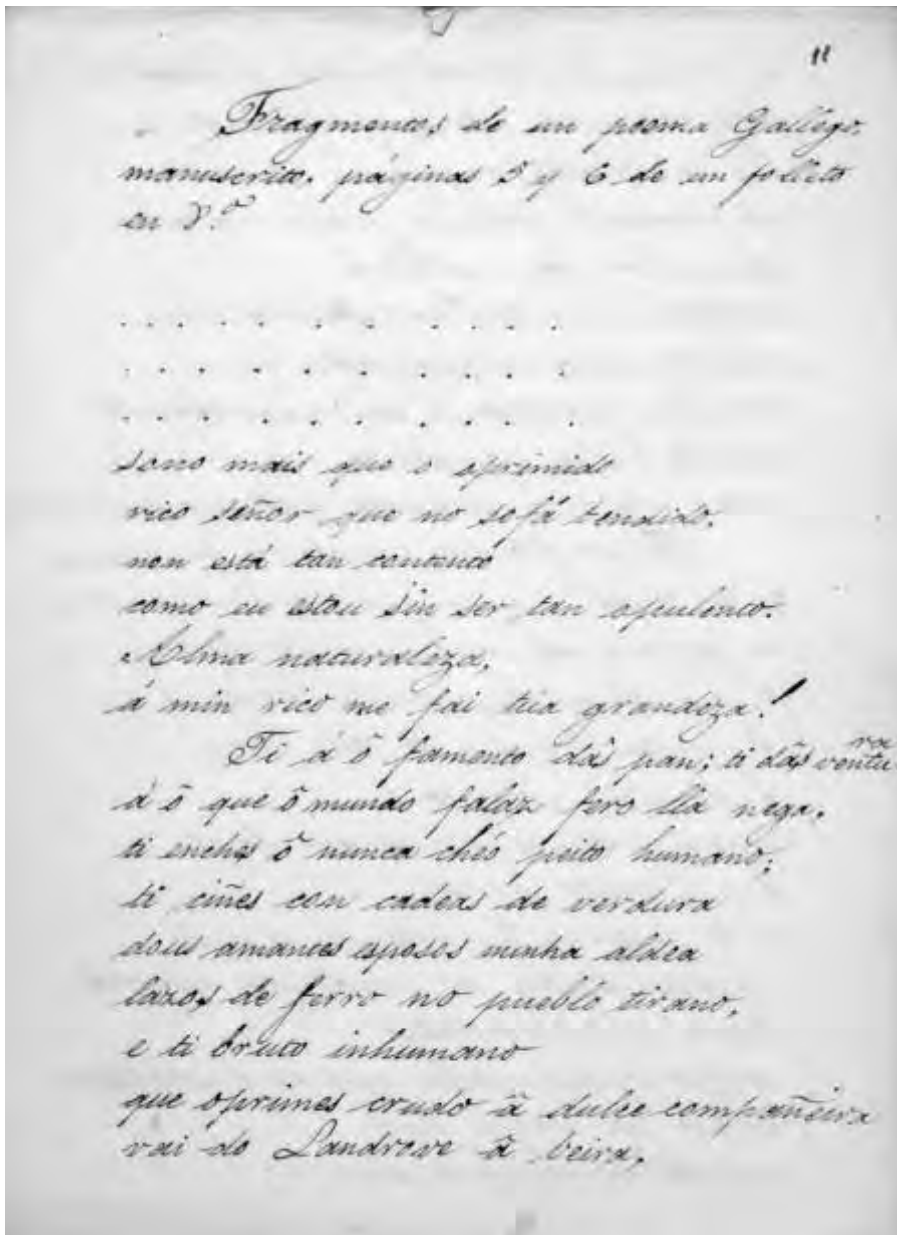 11
Fragmentos de un poema Gallego,
manuscrito. páginas 5 y 6 de un folleto
en 8.º
. . . . . . . . . . . .
. . . . . . . . . . . .
. . . . . . . . . . . .
sono mais que o oprimido
rico señor que no sofá tendido,
non está tan contento
como eu estou sin ser tan opulento.
Alma naturaleza,
á min rico me fai tua grandeza!
Ti á ô famento dás pan; ti dás ventura
á ô que ô mundo falaz fero lla nega,
ti enches ô nunca cheo peito humano;
ti ciñes con cadeas de verdura
dous amantes esposos minha aldea
lazos de ferro no pueblo tirano,
e ti bruto inhumano
que oprimes crudo â dulce compañeira
vai do Landrove â beira,